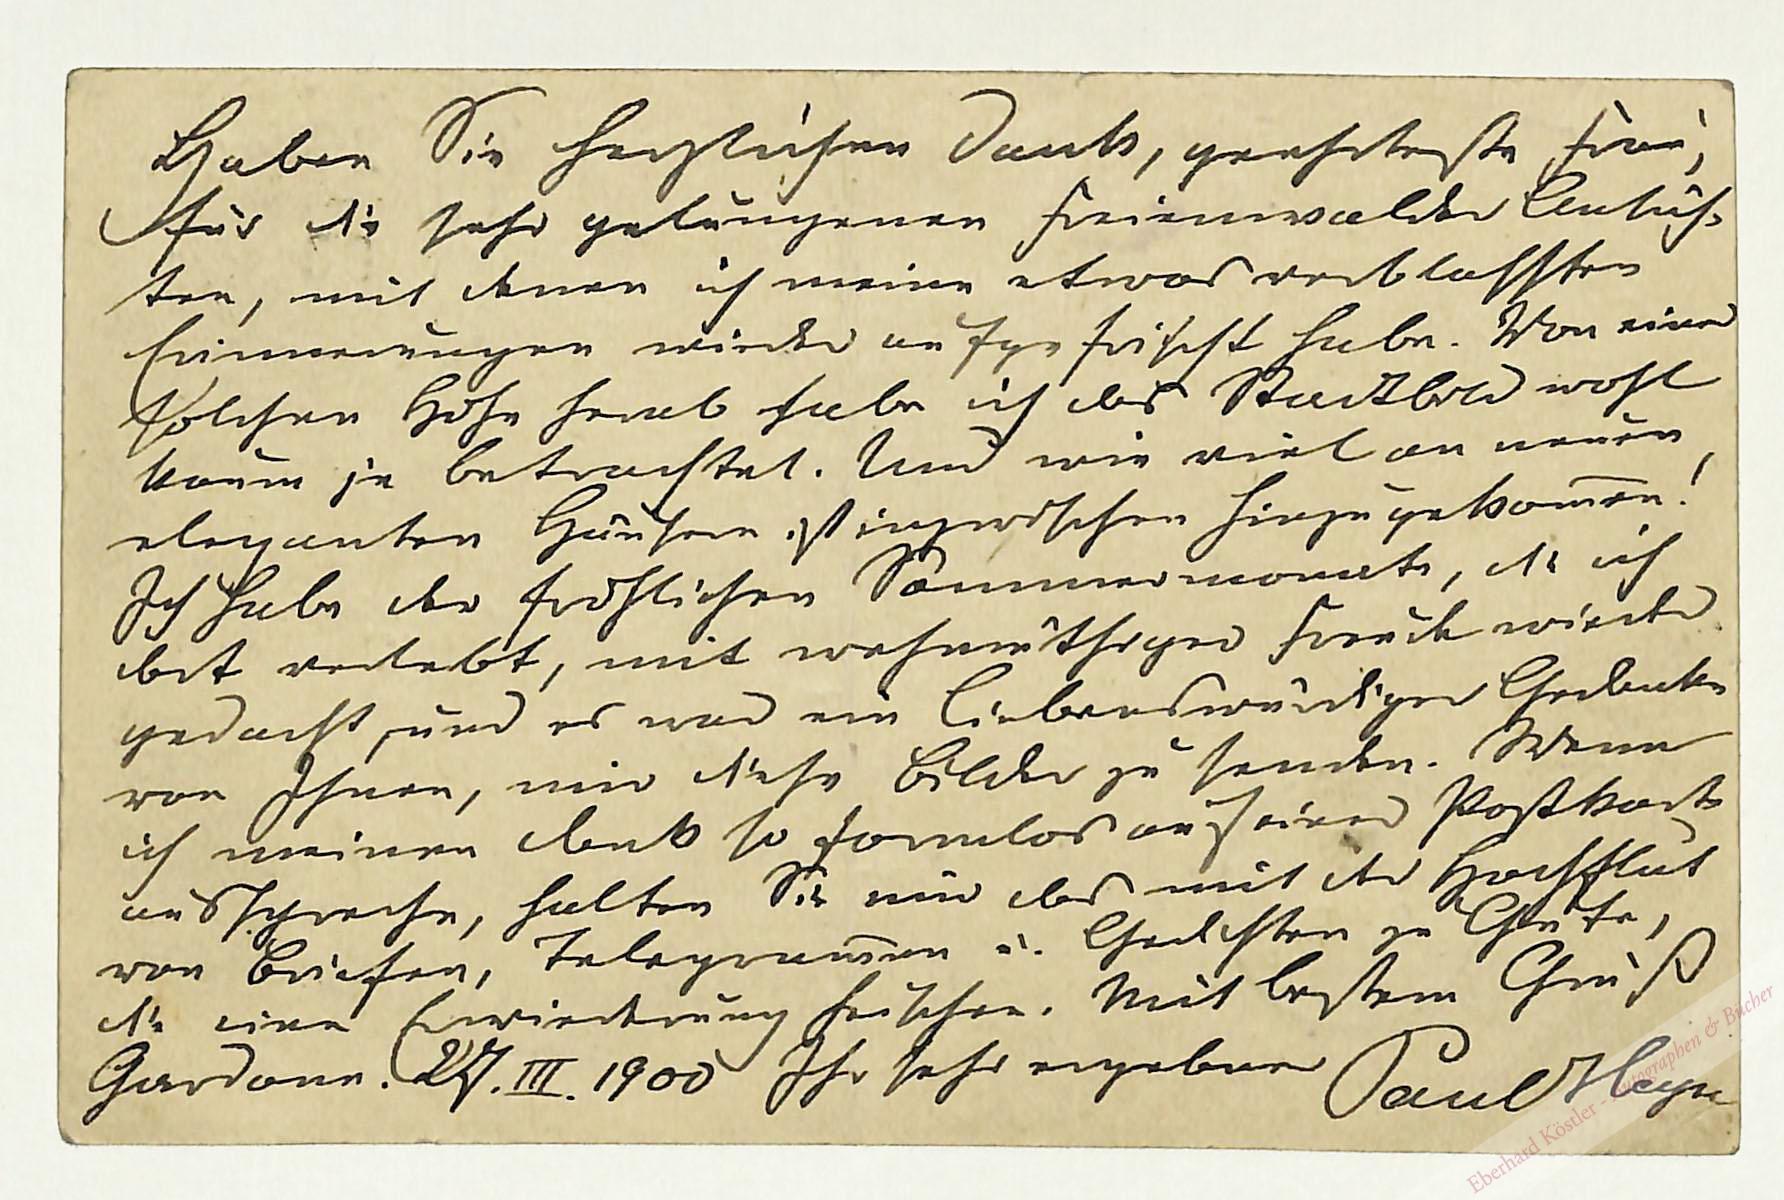 Haben Sie herzlichen Dank, geehrteste Frau,
für die sehr gelungenen Freienwalder Ansich-
ten, mit denen ich meine etwas verblassten
Erinnerungen wieder aufgefrischt habe. Von einer
solchen Höhe herab habe ich das Stadtbild wohl
kaum je betrachtet. Und wie viel an neuen,
eleganten Häusern ist inzwischen hinzugekommen!
Ich habe der fröhlichen Sommermonate, die ich
dort verlebt, mit wehmüthiger Freude wieder
gedacht, und es war ein liebenswürdiger Gedanke
von Ihnen, mir diese Bilder zu senden. Wenn
ich meinen Dank so formlos auf einer Postkarte
ausspreche, halten Sie mir das mit der Hochflut
von Briefen, Telegrammen u. Gedichten zu Gute,
die eine Erwiederung heischen. Mit bestem Gruß
Gardone. 27. III. 1900 Ihr sehr ergebener Paul Heyse
Eberhard Köstler - Autographen & Bücher